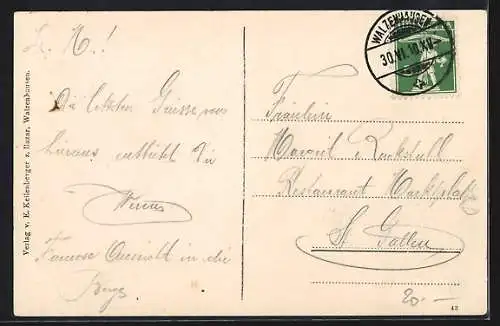 WALZENHAUSEN
30.VI.10.XII
Verlag v. E. Kellenberger z. Bazar, Walzenhausen.
L. M.!
Die letzten Grüsse von
hieraus entbietet Dir
Famose Aussicht in die
Berge
Fräulein
Restaurant Marktplatz
St. Gallen
20.—
42